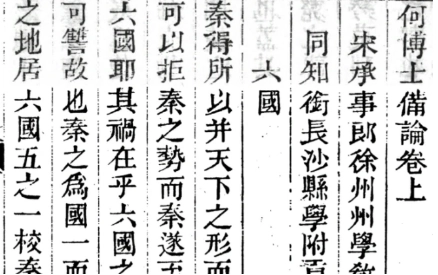 何博士備論卷上
宋承事郎徐州州學教
同知銜長沙縣學附貢
六國
秦得所以并天下之形而
可以拒秦之勢而秦遂
六國耶其禍在乎六國之
可讐故也秦之爲國一而
之地居六國五之一校秦